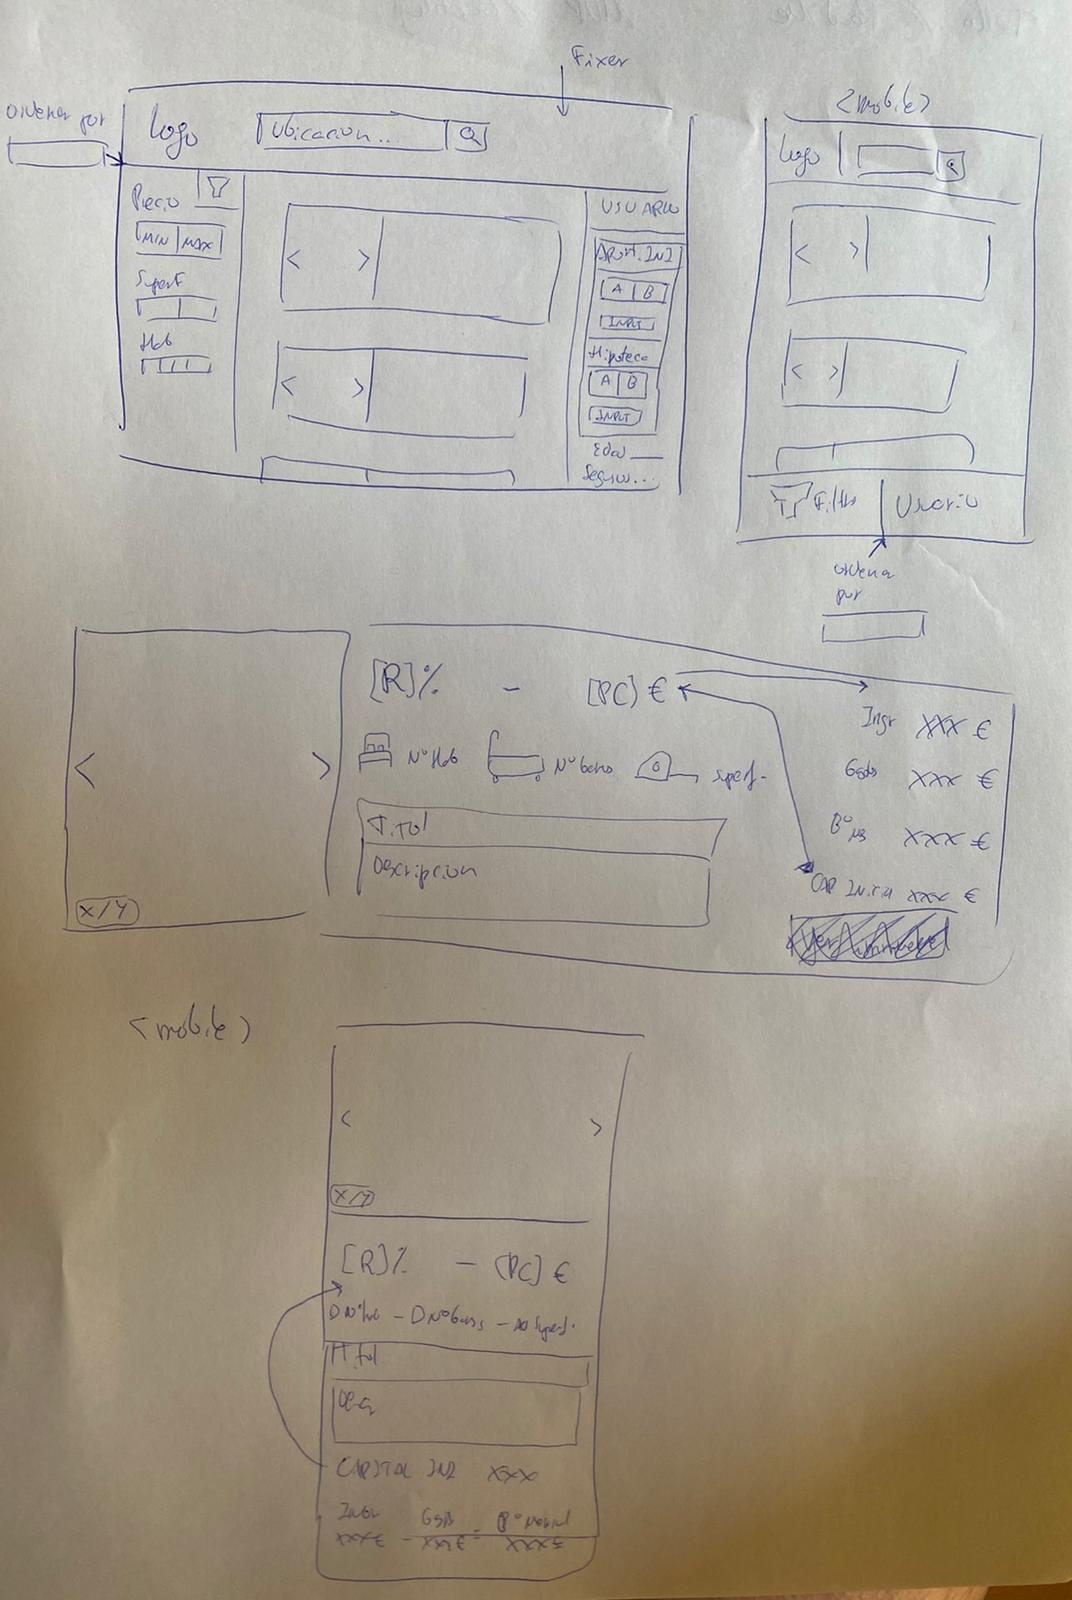 Fixer
Ordenar por
Logo
Ubicacion...
Precio
MIN MAX
Superf
Hab
USUARIO
APORT. INI
A B
INPUT
Hipoteca
A B
INPUT
Edad
Seguro...
<mobile>
Logo
Filtro
Usuario
ordena
por
[R]% - [PC] €
NºHab
Nº baños
superf.
Titol
Descripcion
< >
X/Y
Ingr XXX €
XXX €
XXX €
CAP Inicia XXX €
<mobile>
< >
X/Y
[R]% - [PC] €
Titol
Desc
CAPITAL INI XXX
XXX€ - XXX€ = XXX€